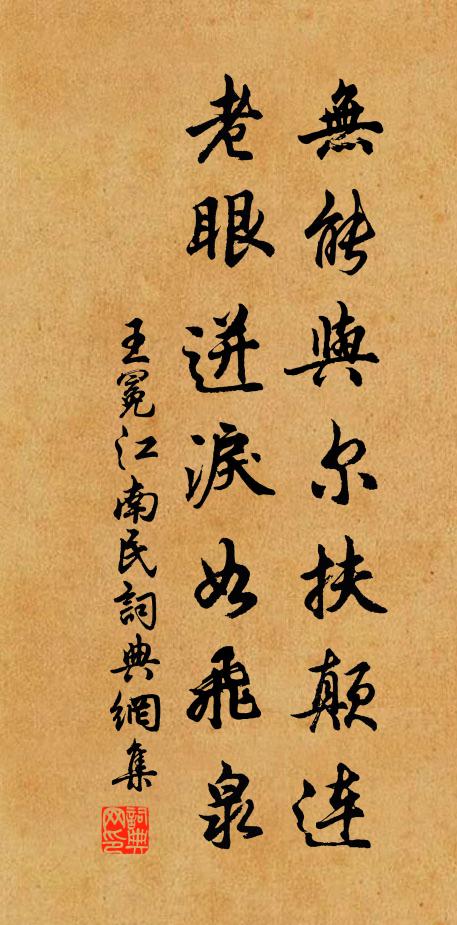 無能與尔扶颠连
老眼迸淚如飛泉
王冕江南民詞典網集
詞典网印